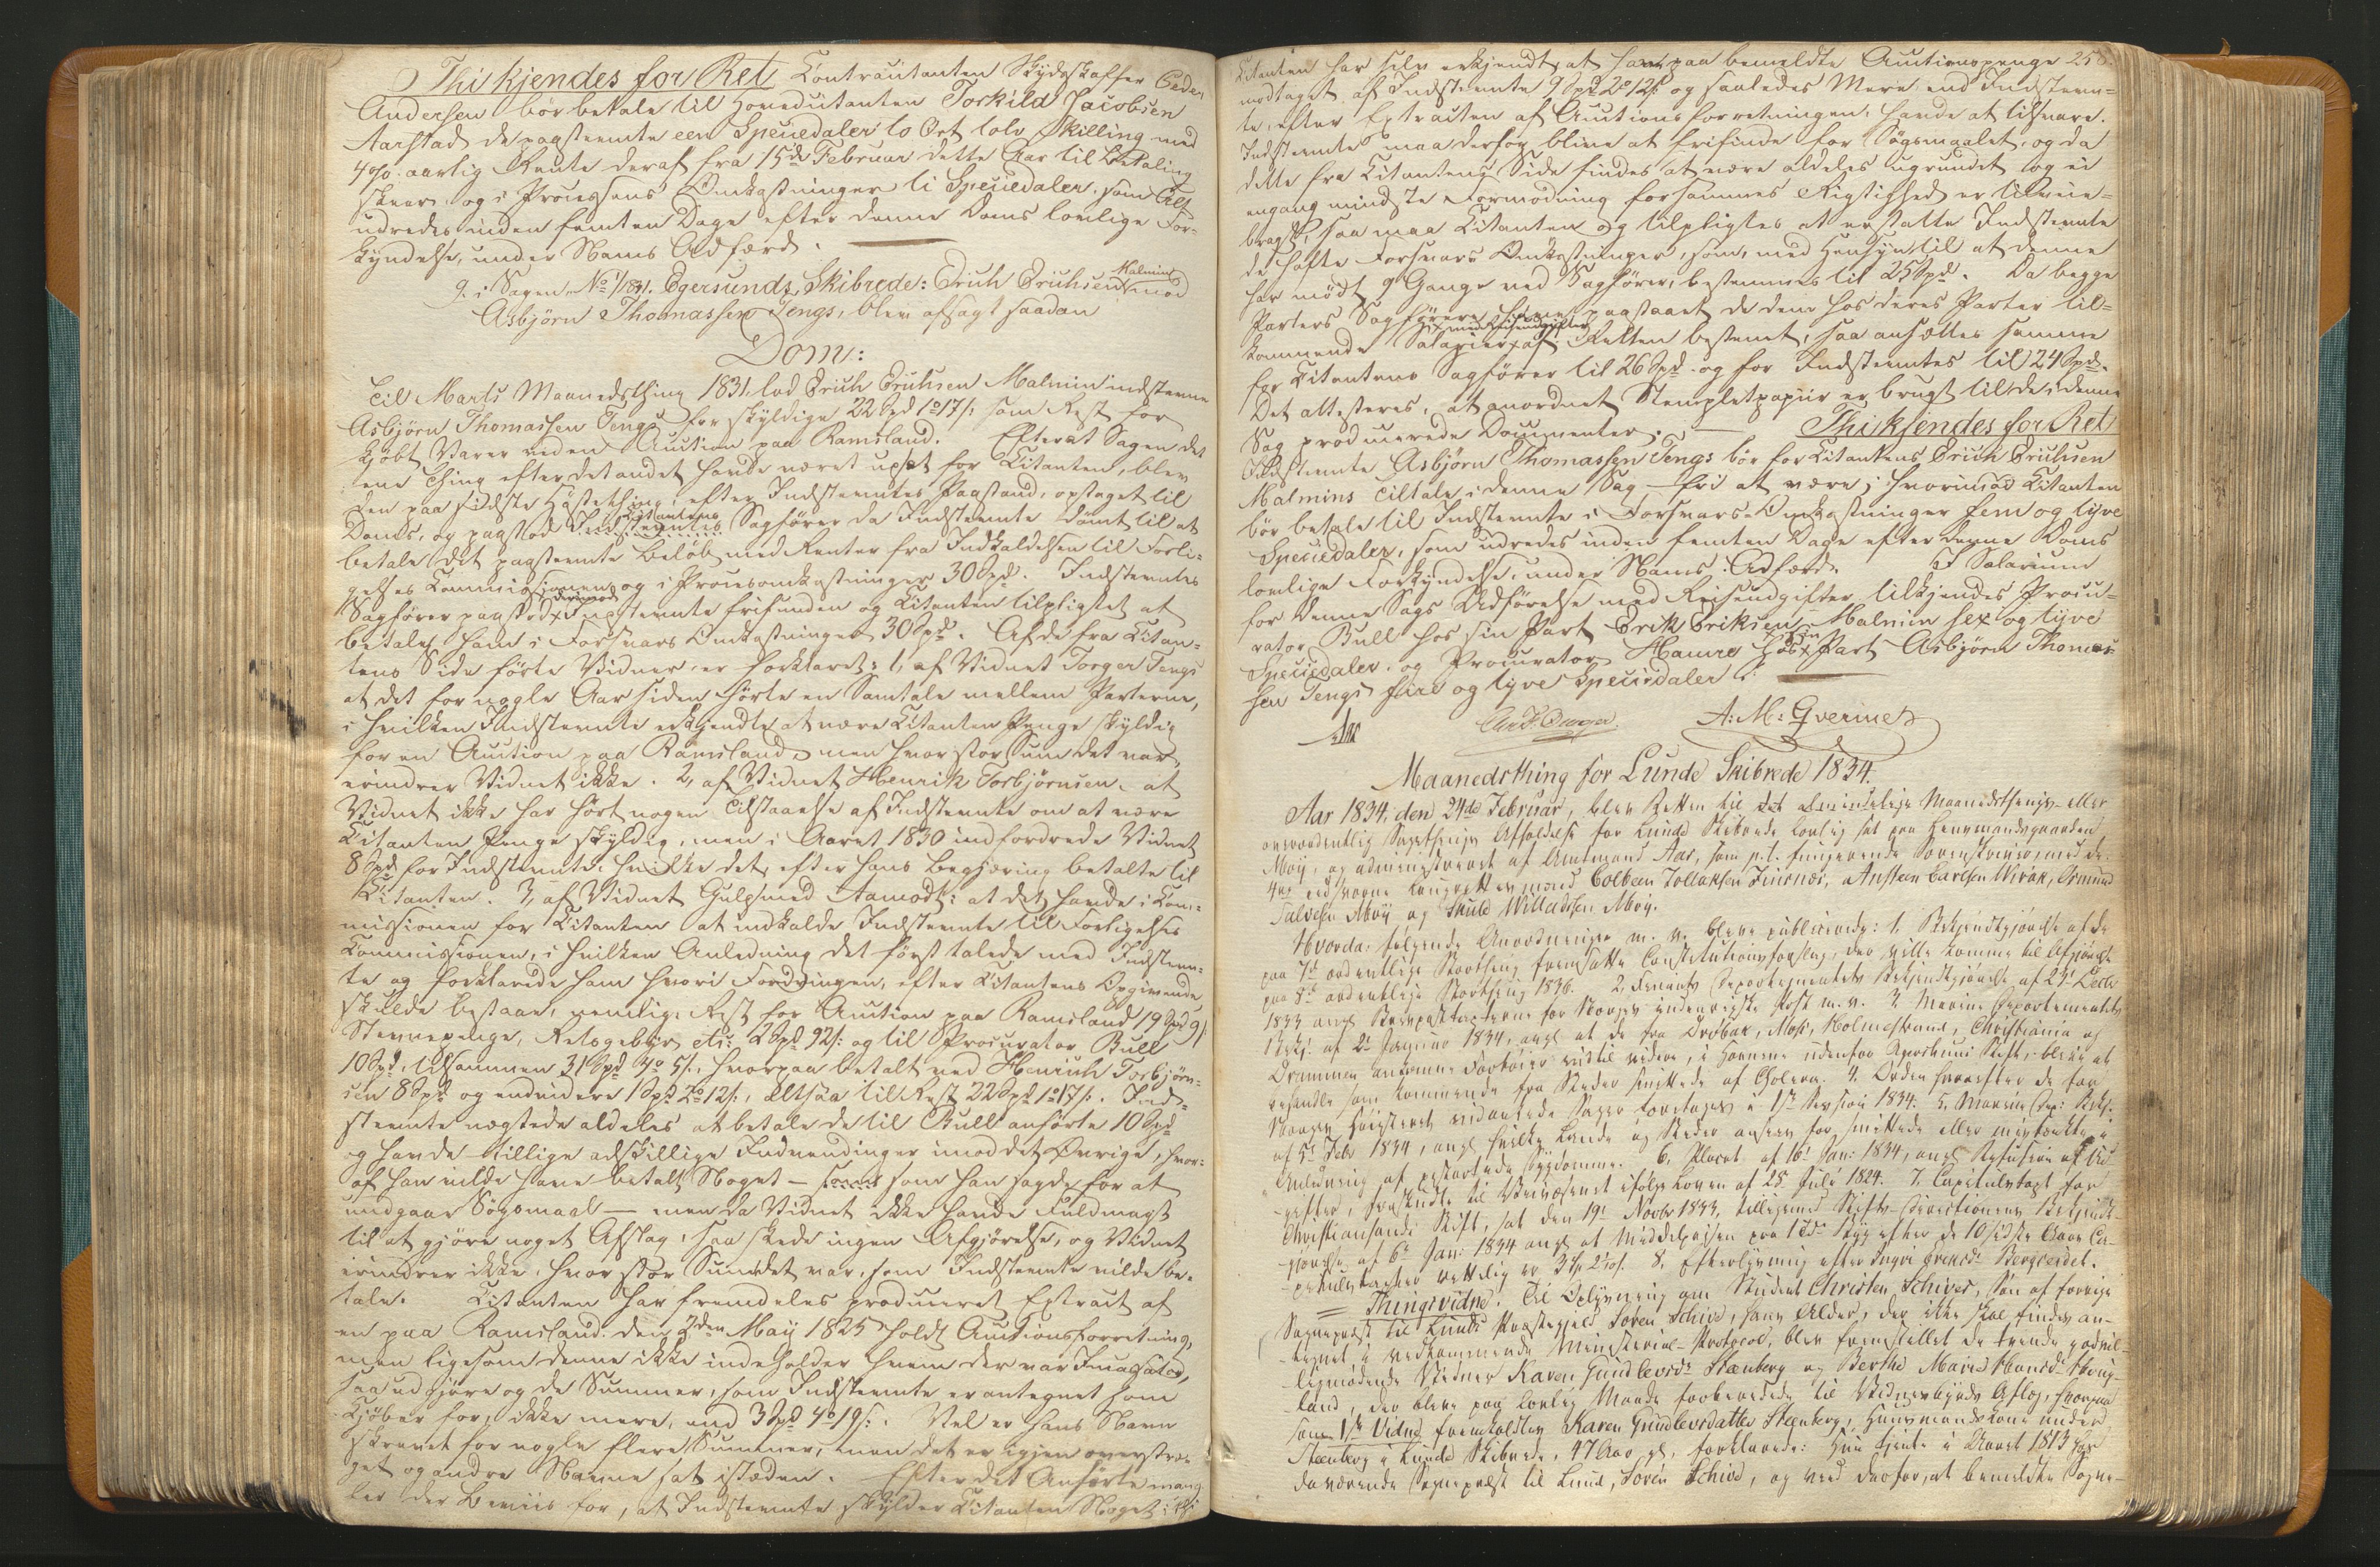 Thi kjendes for Ret Contracitanten Skydsskaffer Peder
Andersen bør betale til Hovedcitanten Torkild Jacobsen
Aarstad de paastevnte een Speciedaler to Ort tolv Skilling med
4 o/o aarlig Rente deraf fra 15de Februar dette Aar til Betaling
skeer, og i Processens Omkostninger ti Speciedaler, som Alt
udredes inden femten Dage efter denne Doms lovlige For-
kyndelse, under Nams Adfærd.
9. i Sagen No 1/1831. Egersunds Skibrede: Erich Erichsen Malmin mod
Asbjörn Thomassen Tengs, blev afsagt saadan
Dom:
Til Marts Maanedsthing 1831 lod Erich Erichsen Malmin indstevne
Asbjörn Thomassen Tengs for skyldige 22 Spd 1 o 17 s: som Rest for
kjøbt Varer ved en Auction paa Ramsland. Efterat Sagen det
ene Thing efter det andet havde været upsat for Citanten, blev
den paa sidste Høstething, efter Indstevntes Paastand, optaget til
Doms, og paastod Indstevntes Citantens Sagfører da Indstevnte dömt til at
betale det paastevnte Beløb med Renter fra Indkaldelsen til Forli-
gelses Commissionen og i Procesomkostninger 30 Spd. Indstevntes
Sagfører paastod derimod Indstevnte frifunden og Citanten tilpligtet at
betale ham i Forsvars Omkostninger 30 Spd. Af de fra Citan-
tens Side førte Vidner er forklaret: 1, af Vidnet Torger Tengs
at det for nogle Aar siden hørte en Samtale mellem Parterne,
i hvilken Indstevnte erkjendte at være Citanten Penge skyldig
for en Auction paa Ramsland, men hvor stor Sum det var,
erindrer Vidnet ikke. 2, af Vidnet Henrik Torbjörnsen, at
Vidnet ikke har hørt nogen Tilstaaelse af Indstevnte om at være
Citanten Penge skyldig, men i Aaret 1830 indfordrede Vidnet
8 Spd for Indstevnte, hvilke det efter hans Begjæring betalte til
Citanten. 3, af Vidnet Gulsmed Aamodt: at det havde i Com-
missionen for Citanten at indkalde Indstevnte til Forligelses
Commissionen, i hvilken Anledning det først talede med Indstevn-
te og forklarede ham hvori Fordringen, efter Citantens Opgivende
skulde bestaae, nemlig: Rest for Auction paa Ramsland 19 Spd 9 s
Stevnepenge, Retsgebyr etc: 2 Spd 92 s: og til Procurator Bull
10 Spd, tilsammen 31 Spd 4 o 5 s., hvorpaa betalt ved Henrich Torbjörn-
sen 8 Spd og endvidere 1 Spd 2 o 12 s:, altsaa til Rest 22 Spd 1 o 17 s:. Ind-
stevnte negtede aldeles at betale de til Bull anførte 10 Spd
og havde tillige adskillige Indvendinger imod det Øvrige, hvor-
af han vilde have betalt Noget — som han sagde for at
undgaae Søgsmaal — men da Vidnet ikke havde Fuldmagt
til at gjøre noget Afslag, saa skede ingen Afgjørelse, og Vidnet
erindrer ikke, hvor stor Sum det var, som Indstevnte vilde be-
tale. Citanten har fremdeles produceret Extract af
en paa Ramsland den 3den May 1825 holdt Auctionsforretning,
men ligesom denne ikke indeholder hvem der var Incassator,
saa udgjøre og de Summer, som Indstevnte er antegnet som
Kjøber for, ikke mere, end 3 Spd 4 o 19 s:. Vel er hans Navn
skrevet for nogle flere Summer, men det er igjen overstrø-
get og andre Navne sat istæden. Efter det Anførte mang-
ler der Beviis for, at Indstevnte skylder Citanten Noget;
Citanten har selv erkjendt, at have paa bemeldte Auctionspenge 258.
modtaget af Indstevnte 9 Spd 2 o 12 s: og saaledes Mere end Indstevn-
te, efter Extracten af Auctionsforretningen, havde at tilsvare.
Indstevnte maa derfor blive at frifinde for Søgsmaalet, og da
dette fra Citantens Side findes at være aldeles ugrundet og ei
engang mindste Formodning for sammes Rigtighed er tilveie-
bragt, saa maa Citanten og tilpligtes at erstatte Indstevnte
de hafte Forsvars Omkostninger, som, med Hensyn til at denne
har mødt 9 Gange ved Sagfører, bestemmes til 25 Spd. Da begge
Parters Sagførere have paastaaet de dem hos deres Parter til-
kommende Salarier med Reiseudgifter af Retten bestemt, saa ansættes samme
for Citantens Sagfører til 26 Spd. og for Indstevntes til 24 Spd.
Det attesteres, at anordnet Stempletpapiir er brugt til de i denne
Sag producerede Documenter. — Thi kjendes for Ret
Indstevnte Asbjörn Thomassen Tengs bör for Citantens Erich Erichsen
Malmins Tiltale i denne Sag fri at være; hvorimod Citanten
bör betale til Indstevnte i Forsvars-Omkostninger fem og tyve
Speciedaler, som udredes inden femten Dage efter denne Doms
lovlige Forkyndelse, under Nams Adfærd. I Salarium
for denne Sags Udførelse med Reiseudgifter tilkjendes Procu-
rator Bull hos sin Part Erik Eriksen Malmin sex og tyve
Speciedaler, og Procurator Hauvre hos sin Part Asbjörn Thomas-
sen Tengs fire og tyve Speciedaler.
A: M: Qvermes
Maanedsthing for Lunde Skibrede 1834.
Aar 1834, den 24de Februar, blev Retten til det almindelige Maanedsthings- eller
overordentlig Sagsthings Afholdelse for Lunde Skibrede lovlig sat paa Lensmandsgaarden
Moy, og administreret af Amtmand Aas, som p.t. fungerende Sorenskriver, med de
4re edsvorne Laugrettesmænd Colbeen Tollaksen Fuirnæs, Ansteen Carlsen Wirak, Osmund
Salvesen Moy og Skule Willadsen Moy.
Hvorda: følgende Anordninger m. v. bleve publicerede: 1. Bekjendtgjørelse af de
paa 7de ordentlige Storthing fremsatte Constitutionsforslag, der ville komme til Afgjørelse
paa 8de ordentlige Storthing 1836. 2. Finants Departementets Bekjendtgjørelse af 23de Decbr
1833 ang. Brevpost m. v. 3. Marine Departementets
Bekj: af 2de Januar 1834, ang. at de fra Drøbak, Moss, Holmestrand, Christiania og
Drammen ankomne Fartøier indtil videre, i Havnene udenfor Aggershuus Stift, blive at
behandle som kommende fra Steder smittede af Cholera. 4. Orden hvorefter de for
Norges Høiesteret indankede Sager foretages i 1ste Session 1834. 5. Marine Dep: Bekj.
af 5te Febr 1834, ang. hvilke Lande og Steder ansees for smittede eller mistænkte i
Anledning af pestartede Sygdomme. 6. Placat af 16de Jan: 1834, ang. Refusion af Ud-
gifter, forskudte til Veivæsenet ifølge Loven af 28 Juli 1824. 7. Capitulstaxt for
Christiansands Stift, sat den 19de Novbr 1833, tilligemed Stifts-Directionens Bekjendt-
gjørelse af 6te Jan: 1834 ang. at Middelprisen paa 1 Td Byg efter de 10 sidste Aars Ca-
pitulstaxter 8. Efterlysning efter Bergvesdet.
Thingsvidne. Til Oplysning om Student Christen Schives, Søn af forrige
Sognepræst til Lunds Præstegjeld Søren Schive, hans Alder, der ikke skal findes an-
tegnet i vedkommende Ministerial-Protocol, blev fremstillet de tvende godvil-
ligmødende Vidner Karen Gundleordt. Steenberg og Berthe Marie Hansdt. Houg-
land, der bleve paa lovlig Maade forberedede til Vidnesbyrds Aflæg, hvorpaa
som 1ste Vidne fremkaldtes Karen Gundleordatter Steenberg, Huusmandskone under
Steenberg i Lunde Skibrede, 47 Aar gl., forklarede: Hun tjente i Aaret 1813 hos
daværende Sognepræst til Lund, Søren Schive, og veed derfor, at bemeldte Sogne-